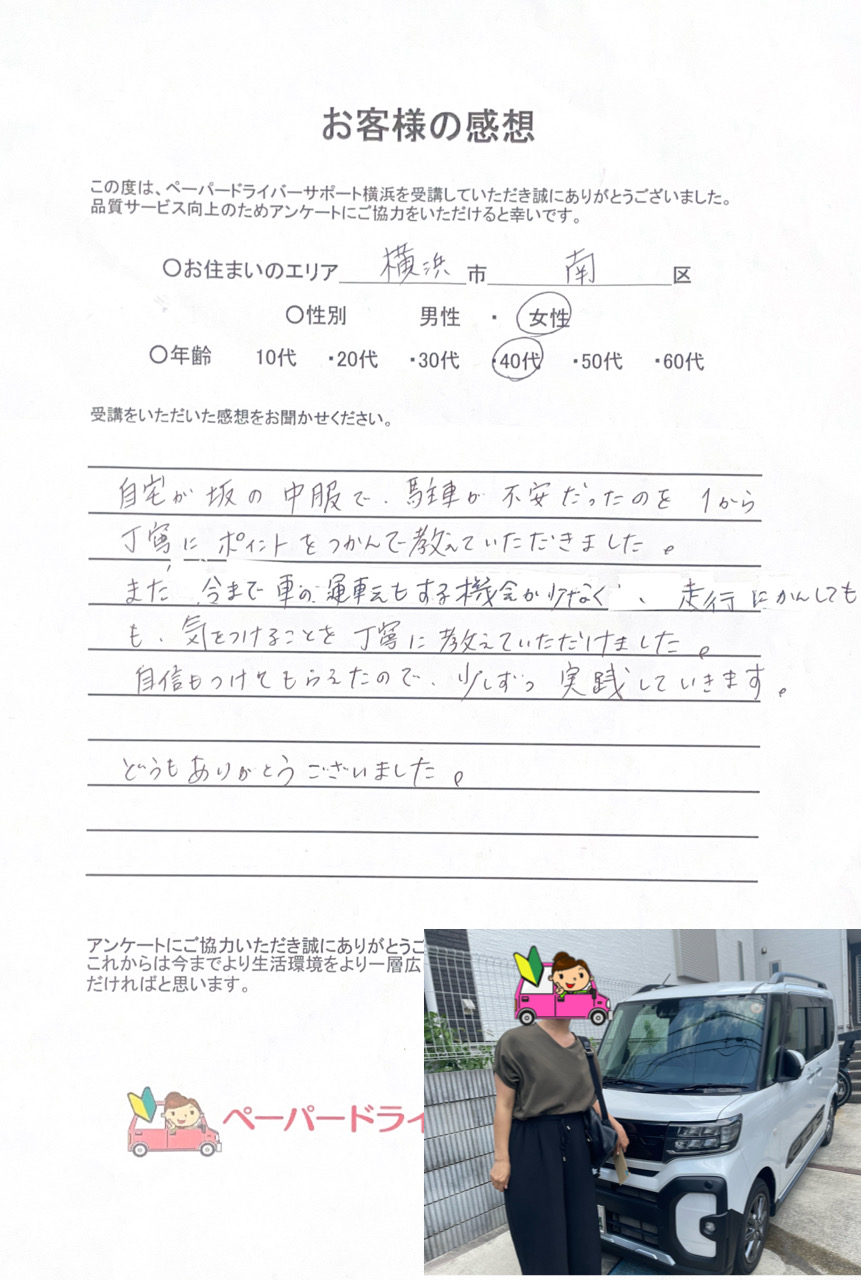 お客様の感想
この度は、ペーパードライバーサポート横浜を受講していただき誠にありがとうございました。
品質サービス向上のためアンケートにご協力をいただけると幸いです。
〇お住まいのエリア 横浜 市 南 区
〇性別 男性 ・ 女性
〇年齢 10代 ・20代 ・30代 ・40代 ・50代 ・60代
受講をいただいた感想をお聞かせください。
自宅が坂の中服で、駐車が不安だったのを1から
丁寧にポイントをつかんで教えていただきました。
また、今まで車の運転もする機会が少なく、走行にかんしても
も、気をつけることを丁寧に教えていただけました。
自信もつけてもらえたので、少しずつ実践していきます。
どうもありがとうございました。
アンケートにご協力いただき誠にありがとうご
これからは今までより生活環境をより一層広
だければと思います。
ペーパードライ